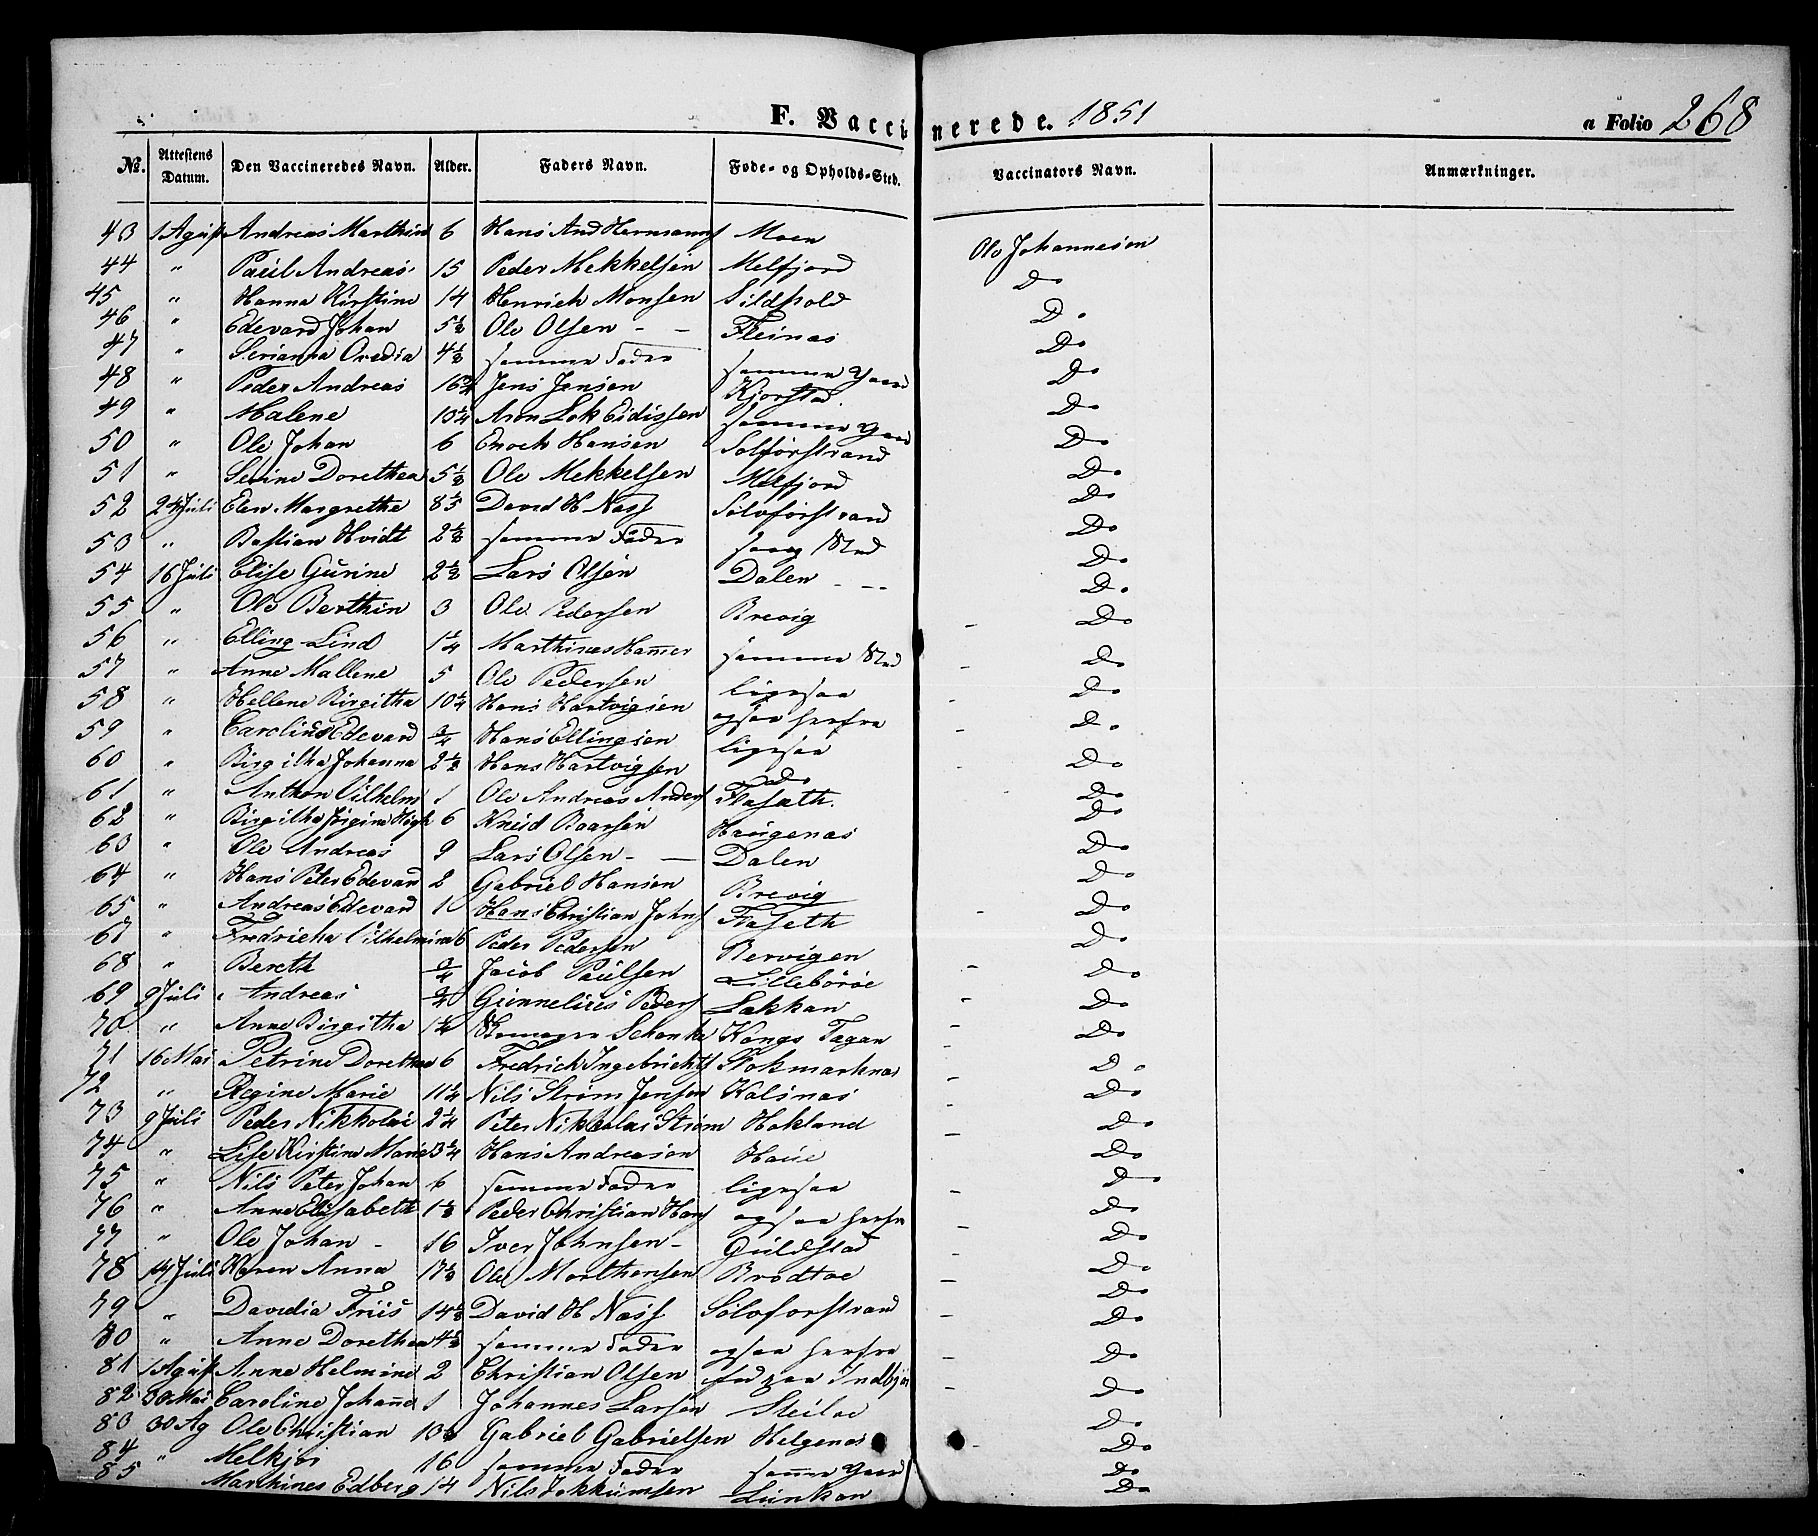 F. Vaccinerede. 1851
a Folio 268
No. Attestens Datum. Den Vaccineredes Navn. Alder. Faders Navn. Føde- og Opholds-Sted. Vaccinators Navn. Anmærkninger.
43 1 Agust Andreas Marthin 6 Hans And Hermans Moen Ole Johannesen
44 " Paul Andreas 15 Peder Mekkelsen Melfjord Do
45 " Hanna Kirstine 14 Henrich Monsen Sildpold Do
46 " Edevard Johan 5½ Ole Olsen - - Fleinæs Do
47 " Serianna Ovedia 4½ samme Fader samme Gaard Do
48 " Peder Andreas 16¾ Jens Jensen Kjorstad Do
49 " Malene 10¼ Aron Lok Eidissen samme Gaard Do
50 " Ole Johan 6 Enoch Hansen Solforstrand Do
51 " Serine Dorethea 5½ Ole Mekkelsen Melfjord Do
52 24 Juli Elen Margrethe 8 David H Nass Soloforstrand Do
53 " Bastian Hvidt 2½ samme Fader Sted Do
54 16 Juli Elise Gurine 2½ Lars Olsen Dalen - - Do
55 " Ole Berthin 3 Ole Pedersen Brevig Do
56 " Elling Lind 1¼ Marthines Hamer samme Sted Do
57 " Anne Mallene 5 Ole Pedersen ligesaa Do
58 " Hellene Birgitha 10¼ Hans Hartvigsen ogsaa herfra Do
59 " Carolius Edevard ¾ Hans Ellingsen ligesaa Do
60 " Birgitha Johanna 2½ Hans Hartvigsen do Do
61 " Anthon Vilhelm 1 Ole Andreas Anders Flasæth. Do
62 " Birgitha Jørgine Høgh 6 Knud Baarsen Haugenæs Do
63 " Ole Andreas 9 Lars Olsen - - Dalen Do
64 " Hans Peter Edevard 2 Gabriel Hansen Brevig Do
65 " Andreas Edevard 1 Hans Christian Johns Flaseth Do
67 " Fredricha Vilhelmina 6 Peder Pedersen Bervigen Do
68 " Bereth ¾ Jacob Paulsen Lilleböröe Do
69 9 Juli Andreas ¾ Gunnelius Peders Lakkan Do
70 " Anne Birgitha 1¼ Schanke Kongs Tagan Do
71 16 Mai Petrine Dorethea 6 Fredrich Ingebrichts Stokmarknæs Do
72 " Regine Marie 11¼ Nils Strøm Jensen Kalsnæs Do
73 9 Juli Peder Nikkolai 2¼ Peter Nikkolai Strøm Hokland Do
74 " Lise Kirstine Marie 3¼ Hans Andreasen Haue Do
75 " Nils Peter Johan 6 samme Fader ligesaa Do
76 " Anne Elisabeth 1½ Peder Christian Hans ogsaa herfra Do
77 " Ole Johan - 16 Iver Johnsen - Guldstad Do
78 14 Juli Karen Anna 17½ Ole Morthensen Brodtøe Do
79 " Davidia Friis 14½ David H Nass Soloforstrand Do
80 " Anne Dorethea 4½ samme Fader ogsaa herfra Do
81 1 Agust Anne Helmine 2 Christian Olsen Do
82 30 Mai Caroline Johanne 1 Johannes Larsen Steiloe Do
83 30 Ag Ole Christian 13½ Gabriel Gabrielsen Helgenæs Do
84 " Melkjor 16 samme Fader samme Gaard Do
85 Marthines Edberg 14 Nils Jokkumsen Lunkan Do